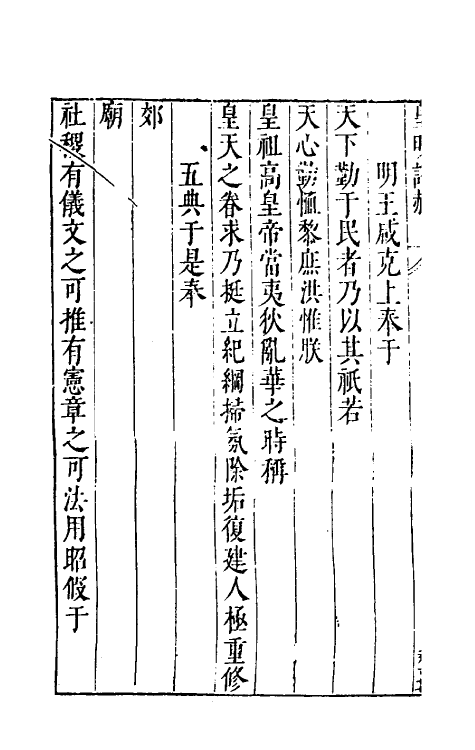 皇明詔赦
明王咸克上奉于
天下勤于民者乃以其祇若
天心勤恤黎庶洪惟朕
皇祖高皇帝當夷狄亂華之時稱
皇天之眷求乃挺立紀綱掃氛除垢復建人極重修
五典于是奉
郊
廟
社稷有儀文之可推有憲章之可法用昭假于